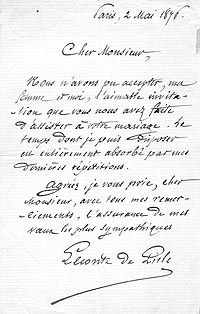 Paris, 2 Mai 1896.
Cher Monsieur,
Nous n'avons pu accepter, ma
femme et moi, l'aimable invita-
tion que vous nous avez faite
d'assister à votre mariage. Le
temps dont je puis disposer
est entièrement absorbé par mes
dernières répétitions.
Agréez, je vous prie, cher
Monsieur, avec tous mes remer-
ciements, l'assurance de mes
vœux les plus sympathiques
Leconte de Lisle